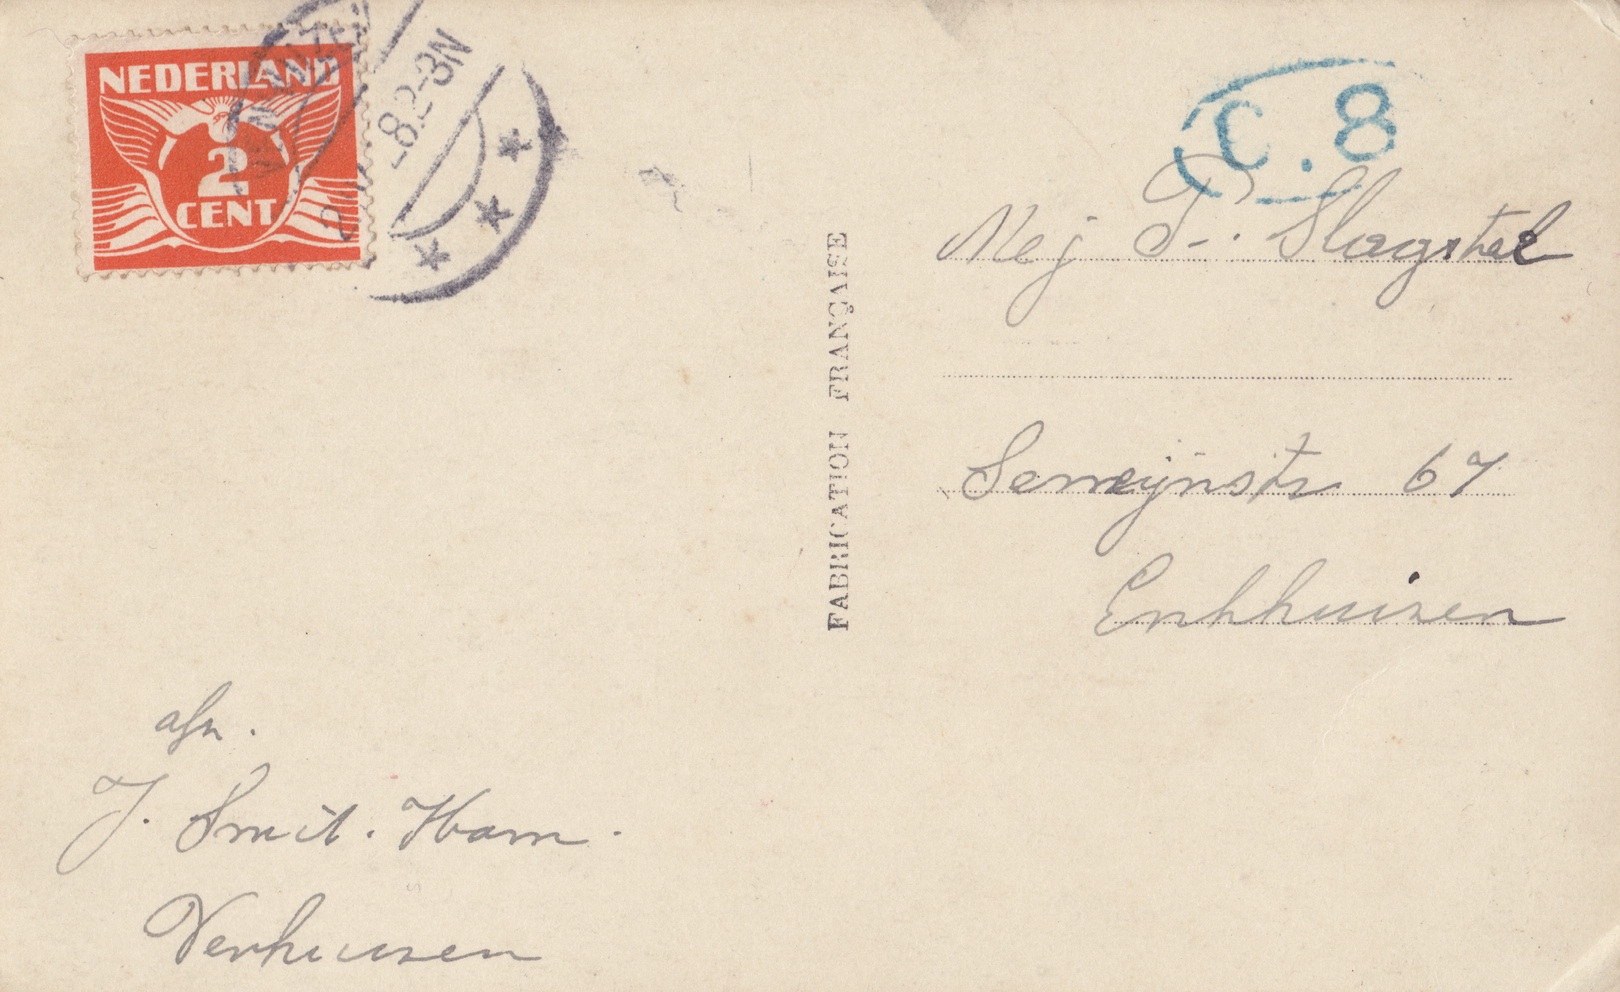 NEDERLAND
2
CENT
-8.2-3N
C.8
Mej P. Slagstal
FABRICATION FRANÇAISE
Semeijnstr 67
Enkhuizen
afn.
J. Smit. Ham.
Venhuizen